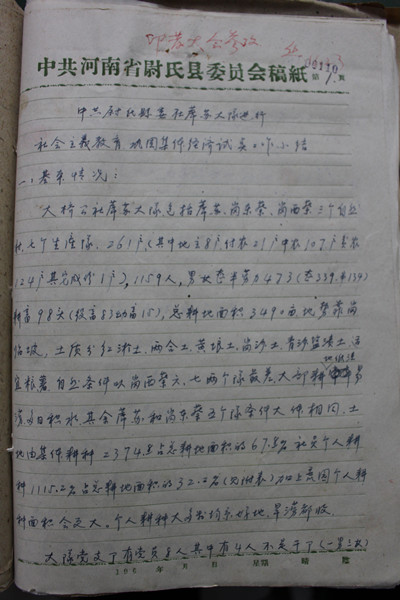 印发大会参改
中共河南省尉氏县委员会稿紙
第 1 頁
中共尉氏县委社席苏大队进行
社会主义教育巩固集体经济试点工作小结
一、基本情况：
大桥公社席苏大队包括席苏、尚东荣、尚西荣三个自然
村，七个生产队，261户（其中地主8户付农21户中农107户贫农
124户其它成份1户），1159人，男女整半劳力473（整339.半134）
耕畜98头（役畜83幼畜15），总耕地面积3490亩，地势
坡，土质分红淤土、两合土、黄垠土、尚沙土、青沙盐堿土适
宜粮薯，自然条件以尚西荣六、七两个队最差，大部耕地低洼易
涝多日积水，其余席苏和尚东荣五个队条件大体相同，土
地由集体耕种2374.8占总耕地面积的67.8%社员个人耕
种1115.2占总耕地面积的32.2%（见附表）加上黄园个人耕
种面积会更大，个人耕种大部均系好地，旱涝都收。
大队党支了有党员8人其中有4人不是干了（一是三次
196 年 月 日 星期 晴 陰